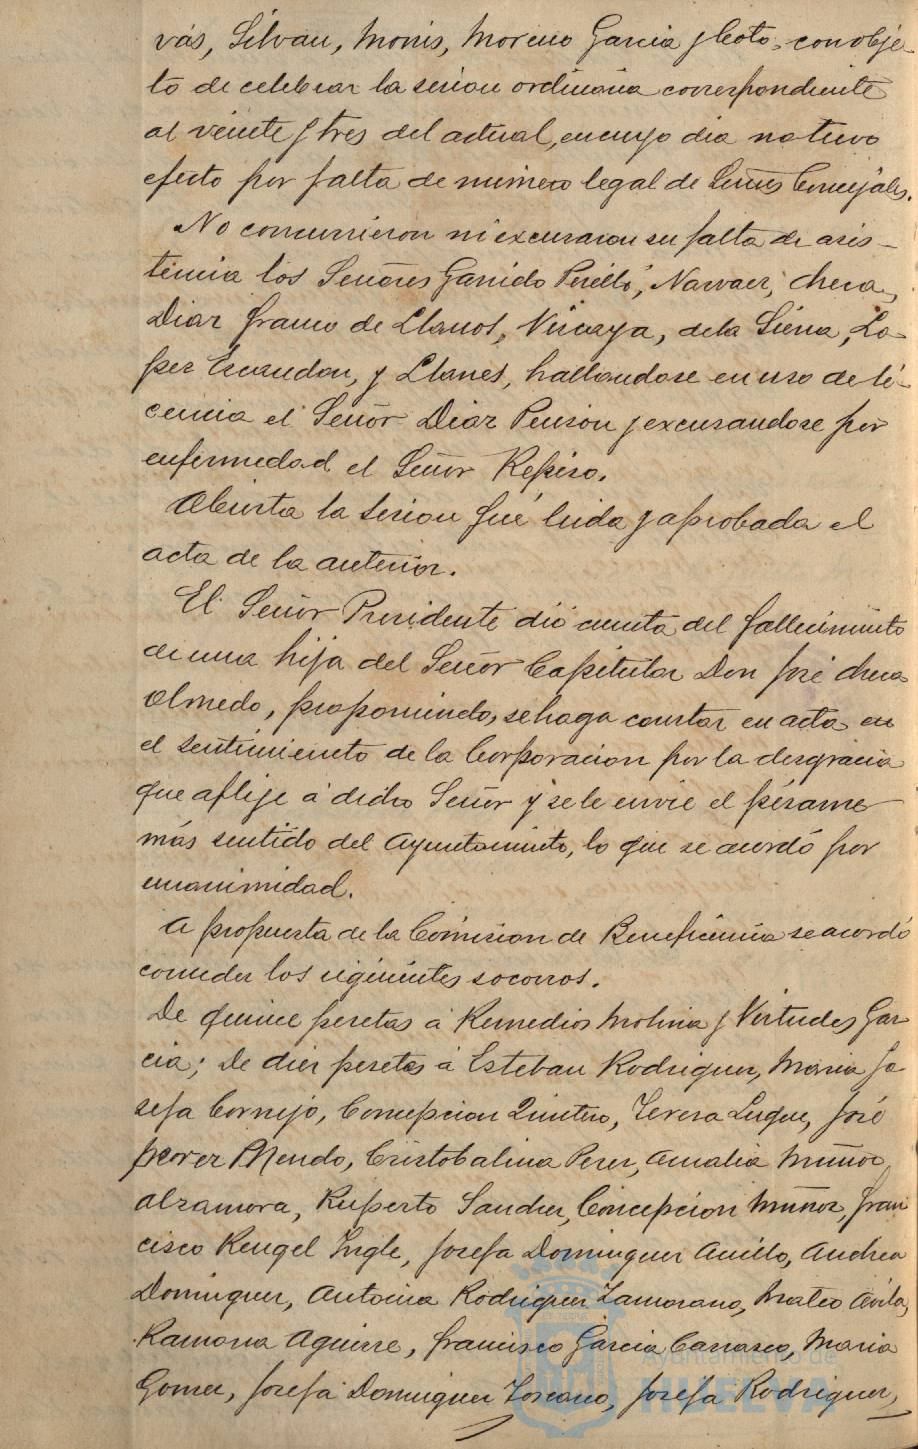 vás, Silvan, Monis, Moreno Garcia y Coto, con obje-
to de celebrar la sesion ordinaria correspondiente
al veinte y tres del actual, en cuyo dia no tuvo
efecto por falta de numero legal de Señores Concejales.
No concurrieron ni excusaron su falta de asis-
tencia los Señores Garrido Perelló, Narvaez, Checa,
Diaz Franco de Llanos, Vizcaya, de la Sierra, Lo-
pez Escandon, y Llanes, hallandose en uso de li-
cencia el Señor Diaz Pension y excusandose por
enfermedad el Señor Repiso.
Abierta la sesion fué leida y aprobada el
acta de la anterior.
El Señor Presidente dió cuenta del fallecimiento
de una hija del Señor Capitular Don José Checa
Olmedo, proponiendo, se haga constar en acta en
el sentimiento de la Corporacion por la desgracia
que aflije á dicho Señor y se le envie el pésame
más sentido del Ayuntamiento, lo que se acordó por
unanimidad.
A propuesta de la Comision de Beneficencia se acordó
conceder los siguientes socorros.
De quince pesetas á Remedios Molina y Virtudes Gar-
cia; De diez pesetas á Esteban Rodriguez, Maria Jo
sefa Cornejo, Concepcion Quintero, Teresa Luque, José
Perez Mendo, Cristobalina Perez, Amalia Muñoz
Alzamora, Ruperto Sanchez, Concepcion Muñoz, Fran
cisco Rengel Ingle, Josefa Dominguez Avillo, Andrea
Dominguez, Antonia Rodriguez Zamorano, Mateo Avila,
Ramona Aguirre, Francisco Garcia Carrasco, Maria
Gomez, Josefa Dominguez Toscano, Josefa Rodriguez,
Ayuntamiento de
HUELVA